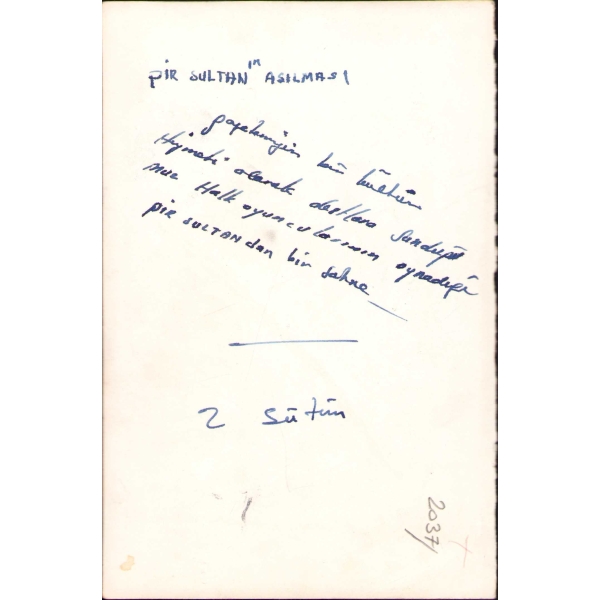 PİR SULTAN'ın ASILMASI
gazetemizin bir kültür
Hizmeti olarak dostlara sunduğu
muz Halk oyuncularının oynadığı
PİR SULTANdan bir sahne
2 sütun
2037/